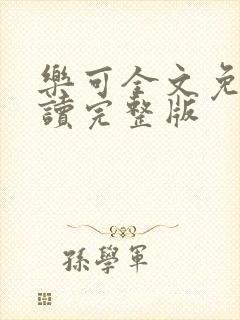 樂可全文免
讀完整版
孫學軍